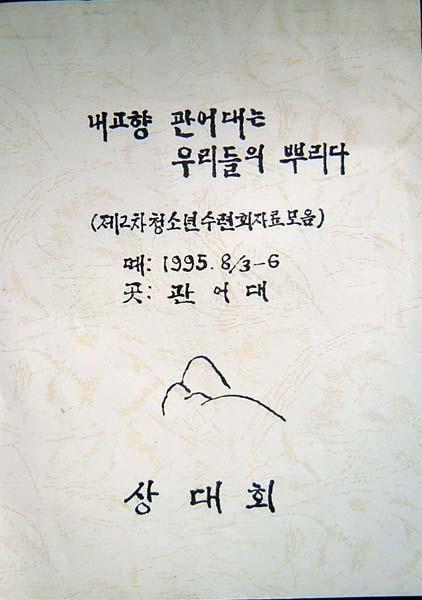 내고향 관어대는
우리들의 뿌리다
(제2차청소년수련회자료모음)
때: 1995. 8/3-6
곳: 관어대
상대회